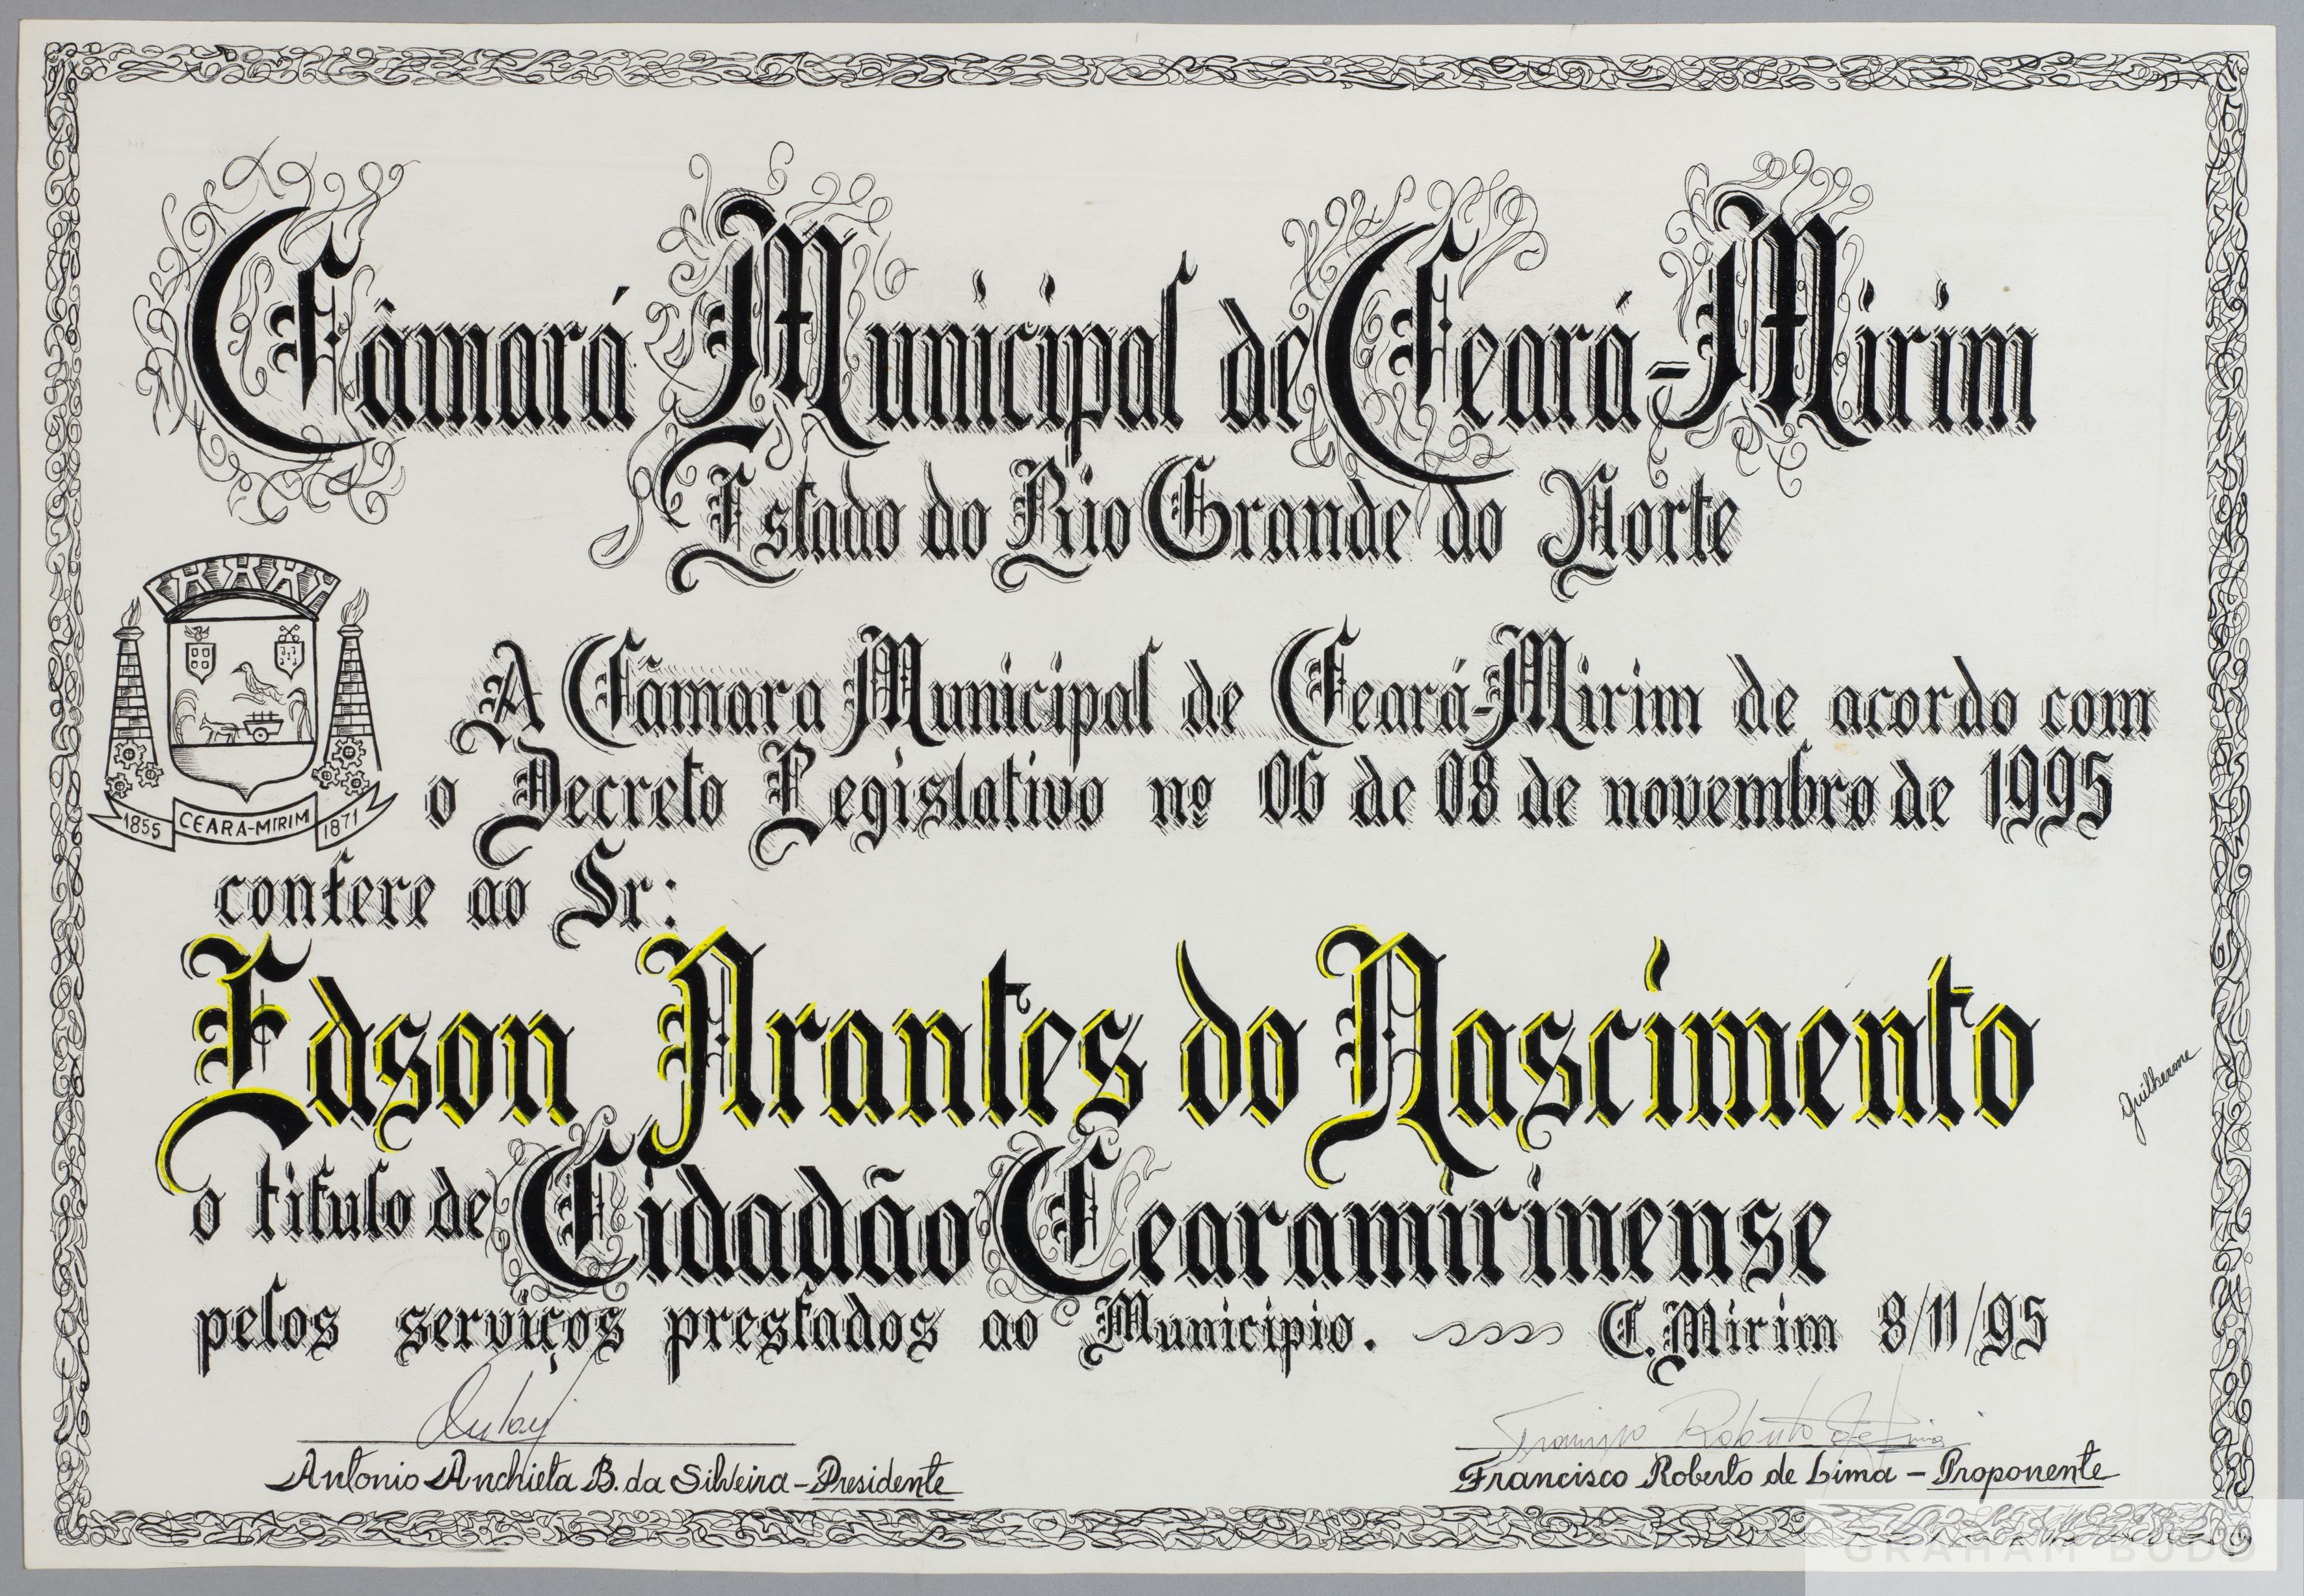 Câmará Municipal de Ceará-Mirim
Estado do Rio Grande do Norte
A Câmara Municipal de Ceará-Mirim de acordo com
o Decreto Legislativo nº 06 de 08 de novembro de 1995
1855 CEARA-MIRIM 1871
confere ao Sr:
Edson Arantes do Nascimento
Guilherme
o titulo de Cidadão Cearamirinense
pelos serviços prestados ao Municipio. C.Mirim 8/11/95
Francisco Roberto de Lima
Antonio Anchieta B. da Silveira - Presidente
Francisco Roberto de Lima - Proponente
GRAHAM BUDD